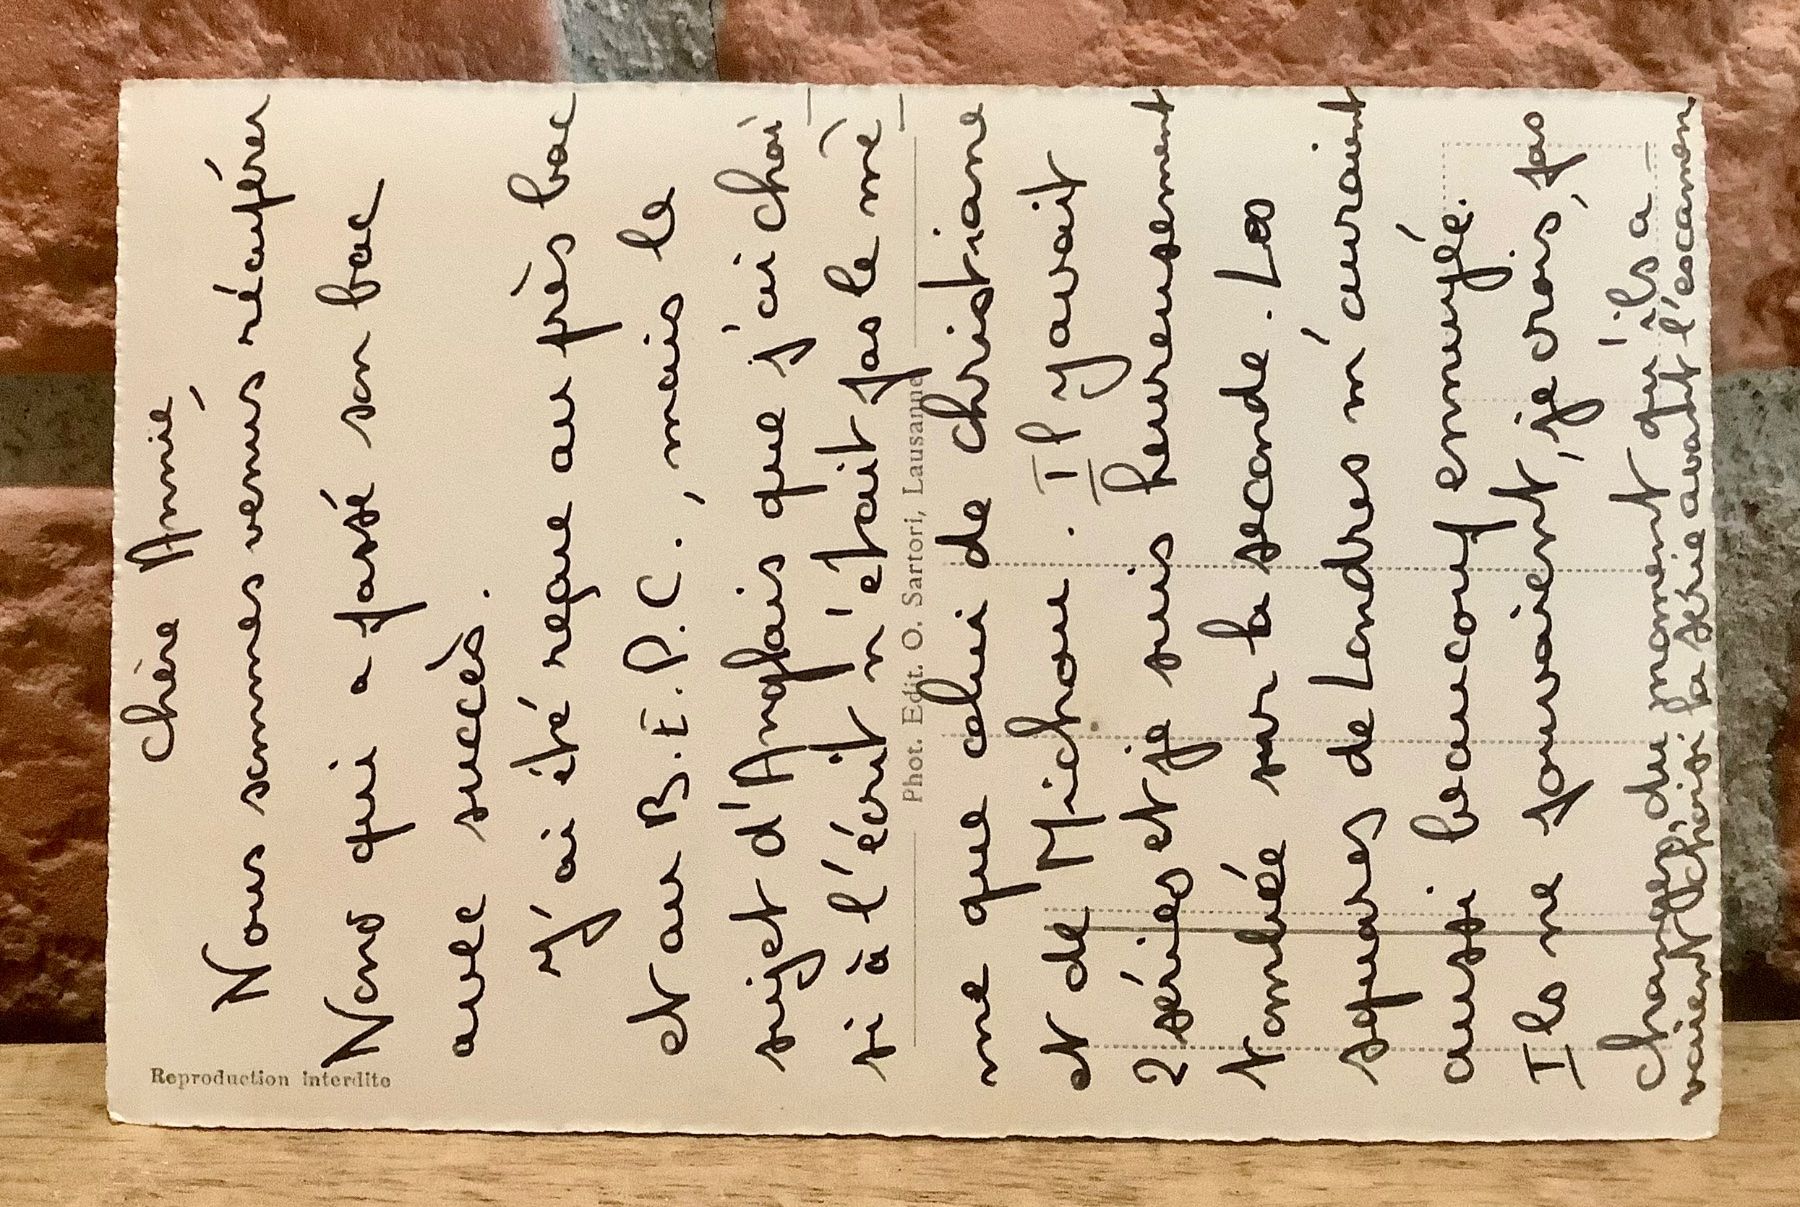 Chère Annie,
Nous sommes venus récupérer
Nano qui a passé son bac
avec succès.
J'ai été reçue au près bac
et au B.E.P.C., mais le
sujet d'Anglais que j'ai choi-
si à l'écrit n'était pas le mê-
me que celui de Christiane
et de Michou. Il y avait
2 séries et je suis heureusement
tombée sur la seconde. Les
squares de Londres m'auraient
aussi beaucoup ennuyée.
Ils ne pouvaient, je crois, pas
changer, du moment qu'ils a-
vaient choisi la série avant l'examen
Reproduction interdite
Phot. Edit. O. Sartori, Lausanne